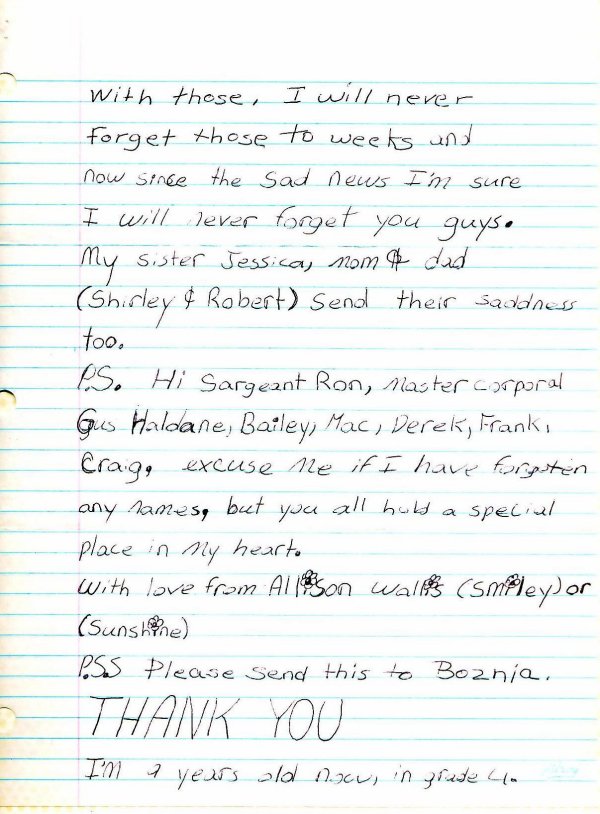 With those, I will never
forget those to weeks and
now since the sad news I'm sure
I will never forget you guys.
My sister Jessica, mom & dad
(Shirley & Robert) Send their saddness
too.
P.S. Hi Sargeant Ron, Master corporal
Gus Haldane, Bailey, Mac, Derek, Frank,
Craig, excuse me if I have forgoten
any names, but you all hold a special
place in my heart.
With love from Allison Wallis (Smiley) or
(Sunshine)
P.S.S Please send this to Boznia.
THANK YOU
I'm 9 years old now, in grade 4.